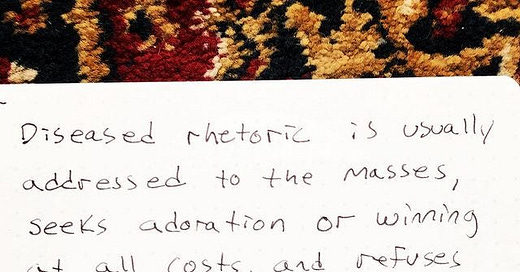 Diseased rhetoric is usually
addressed to the masses,
seeks adoration or winning
at all costs, and refuses